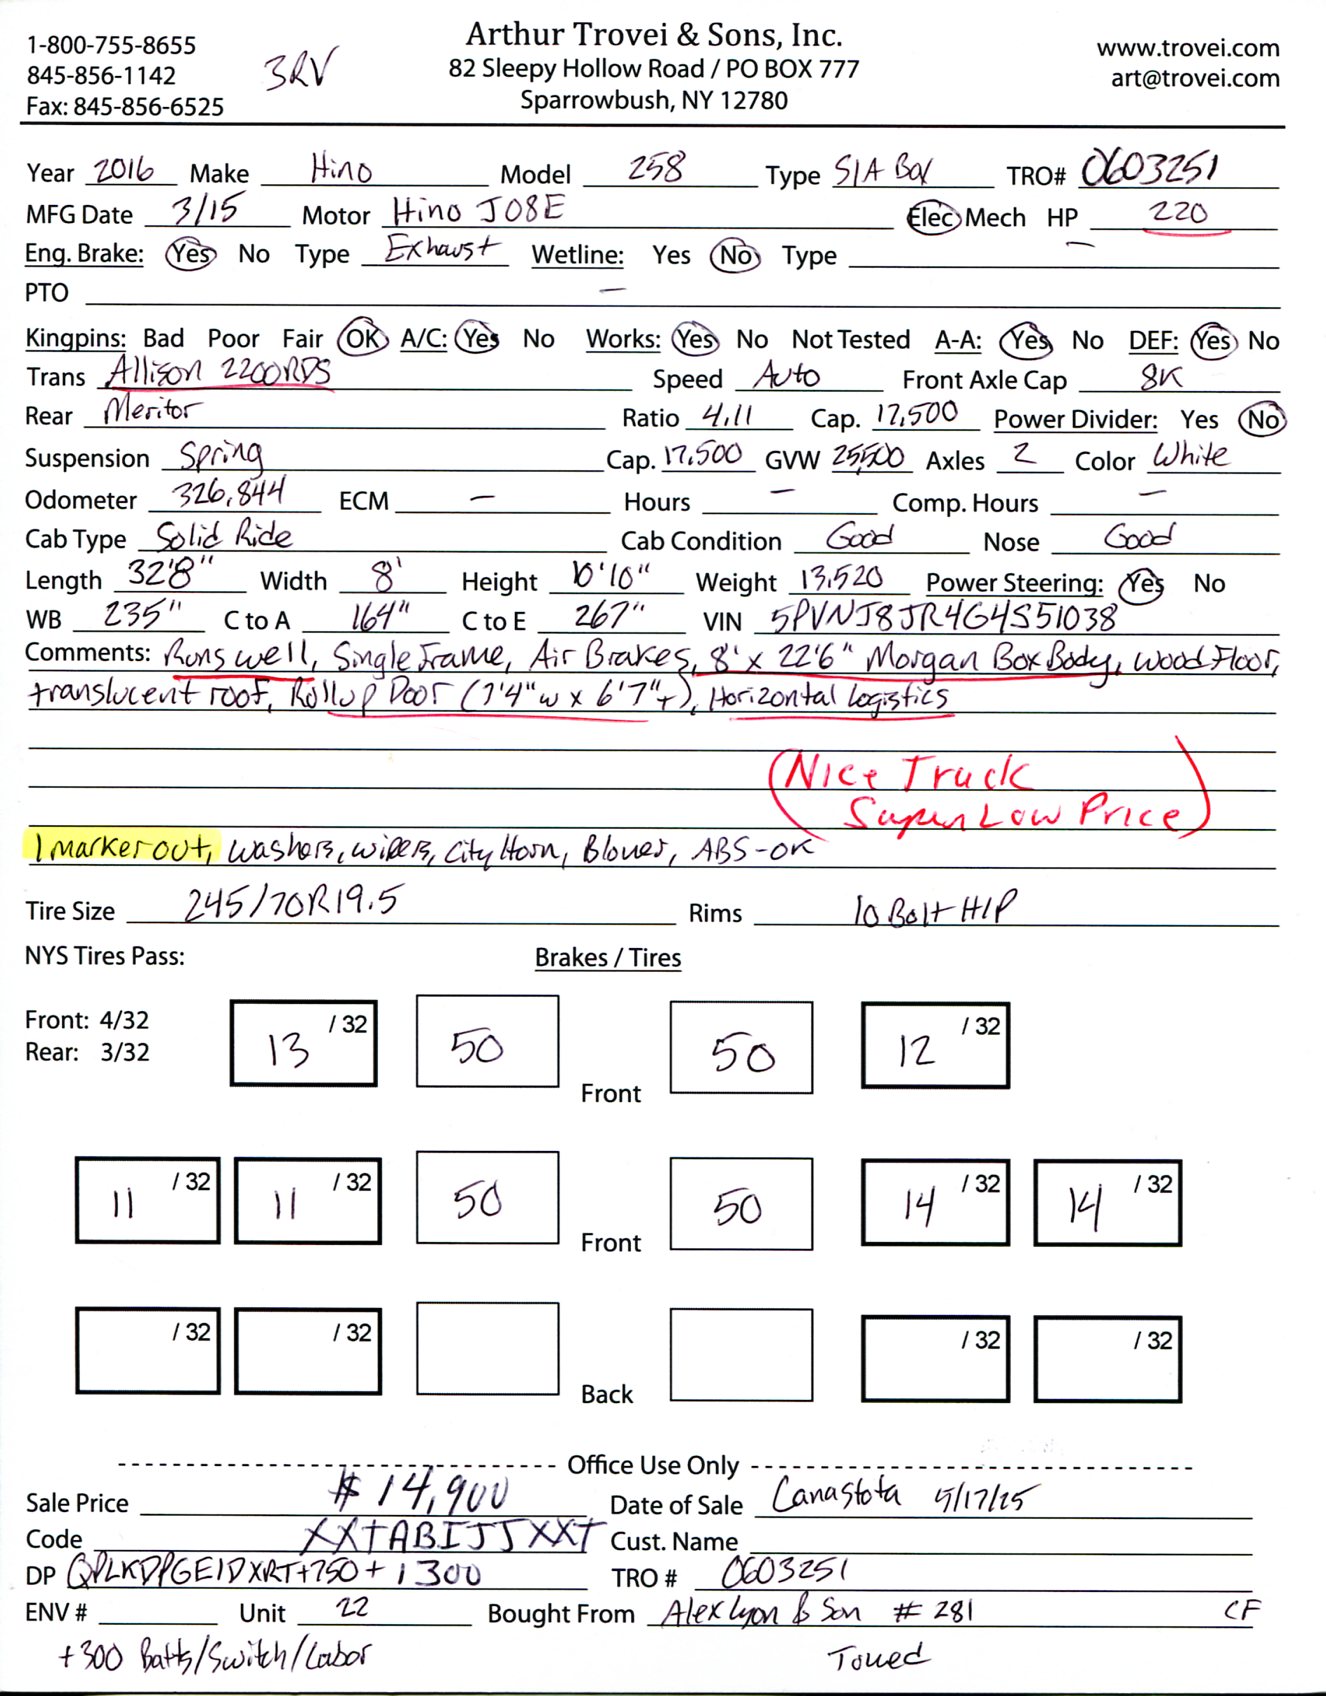 1-800-755-8655
845-856-1142
Fax: 845-856-6525
3RV
Arthur Trovei & Sons, Inc.
82 Sleepy Hollow Road / PO BOX 777
Sparrowbush, NY 12780
www.trovei.com
art@trovei.com
Year 2016 Make Hino Model 258 Type S/A Box TRO# 0603251
MFG Date 3/15 Motor Hino J08E Elec Mech HP 220
Eng. Brake: Yes No Type Exhaust Wetline: Yes No Type —
PTO —
Kingpins: Bad Poor Fair OK A/C: Yes No Works: Yes No Not Tested A-A: Yes No DEF: Yes No
Trans Allison 2200RDS Speed Auto Front Axle Cap 8K
Rear Meritor Ratio 4.11 Cap. 17,500 Power Divider: Yes No
Suspension Spring Cap. 17,500 GVW 25,500 Axles 2 Color White
Odometer 326,844 ECM — Hours — Comp. Hours —
Cab Type Solid Ride Cab Condition Good Nose Good
Length 32'8" Width 8' Height 10'10" Weight 13,520 Power Steering: Yes No
WB 235" C to A 164" C to E 267" VIN 5PVNJ8JR4G4S51038
Comments: Runs well, Single Frame, Air Brakes, 8' x 22'6" Morgan Box Body, Wood Floor,
translucent roof, Rollup Door (7'4"w x 6'7"+), Horizontal logistics
(Nice Truck
Super Low Price)
1 marker out, washers, wipers, City Horn, Blower, ABS-OK
Tire Size 245/70R19.5 Rims 10 Bolt H/P
NYS Tires Pass: Brakes / Tires
Front: 4/32
Rear: 3/32
13 /32 50 Front 50 12 /32
11 /32 11 /32 50 Front 50 14 /32 14 /32
/32 /32 Back /32 /32
Office Use Only
Sale Price $14,900 Date of Sale Canastota 5/17/25
Code XXTABIJJXXT Cust. Name
DP QPLKDPGEIDXRT+750+1300 TRO # 0603251
ENV # Unit 22 Bought From Alex Lyon & Son #281 CF
+300 Batts/Switch/Labor Towed